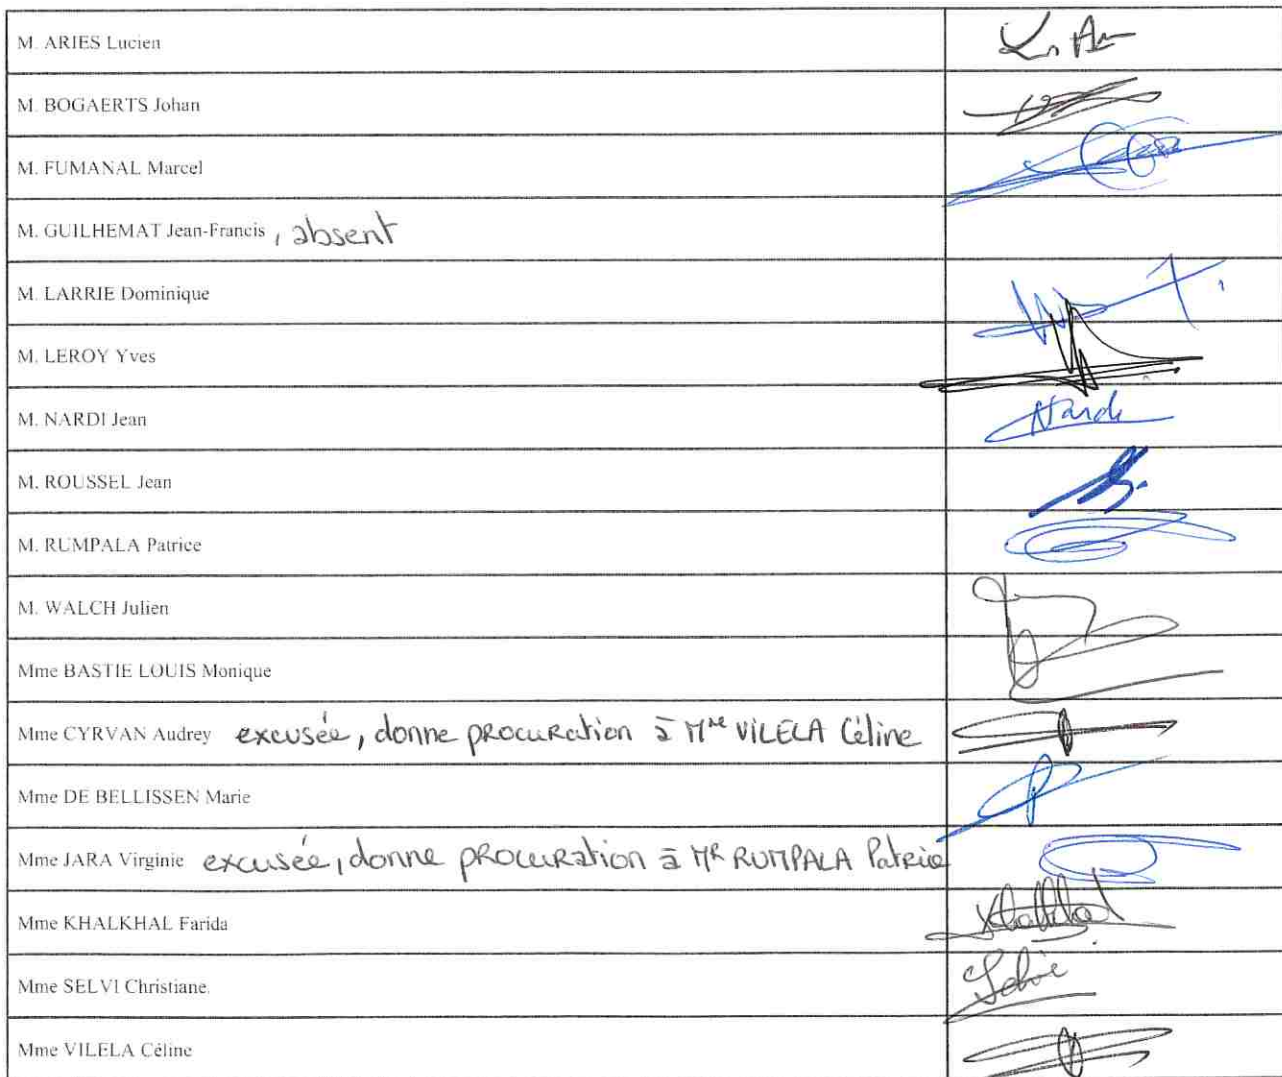 M. ARIES Lucien
M. BOGAERTS Johan
M. FUMANAL Marcel
M. GUILHEMAT Jean-Francis, absent
M. LARRIE Dominique
M. LEROY Yves
M. NARDI Jean
M. ROUSSEL Jean
M. RUMPALA Patrice
M. WALCH Julien
Mme BASTIE LOUIS Monique
Mme CYRVAN Audrey excusée, donne procuration à Mme VILELA Céline
Mme DE BELLISSEN Marie
Mme JARA Virginie excusée, donne procuration à MR RUMPALA Patrice
Mme KHALKHAL Farida
Mme SELVI Christiane.
Mme VILELA Céline